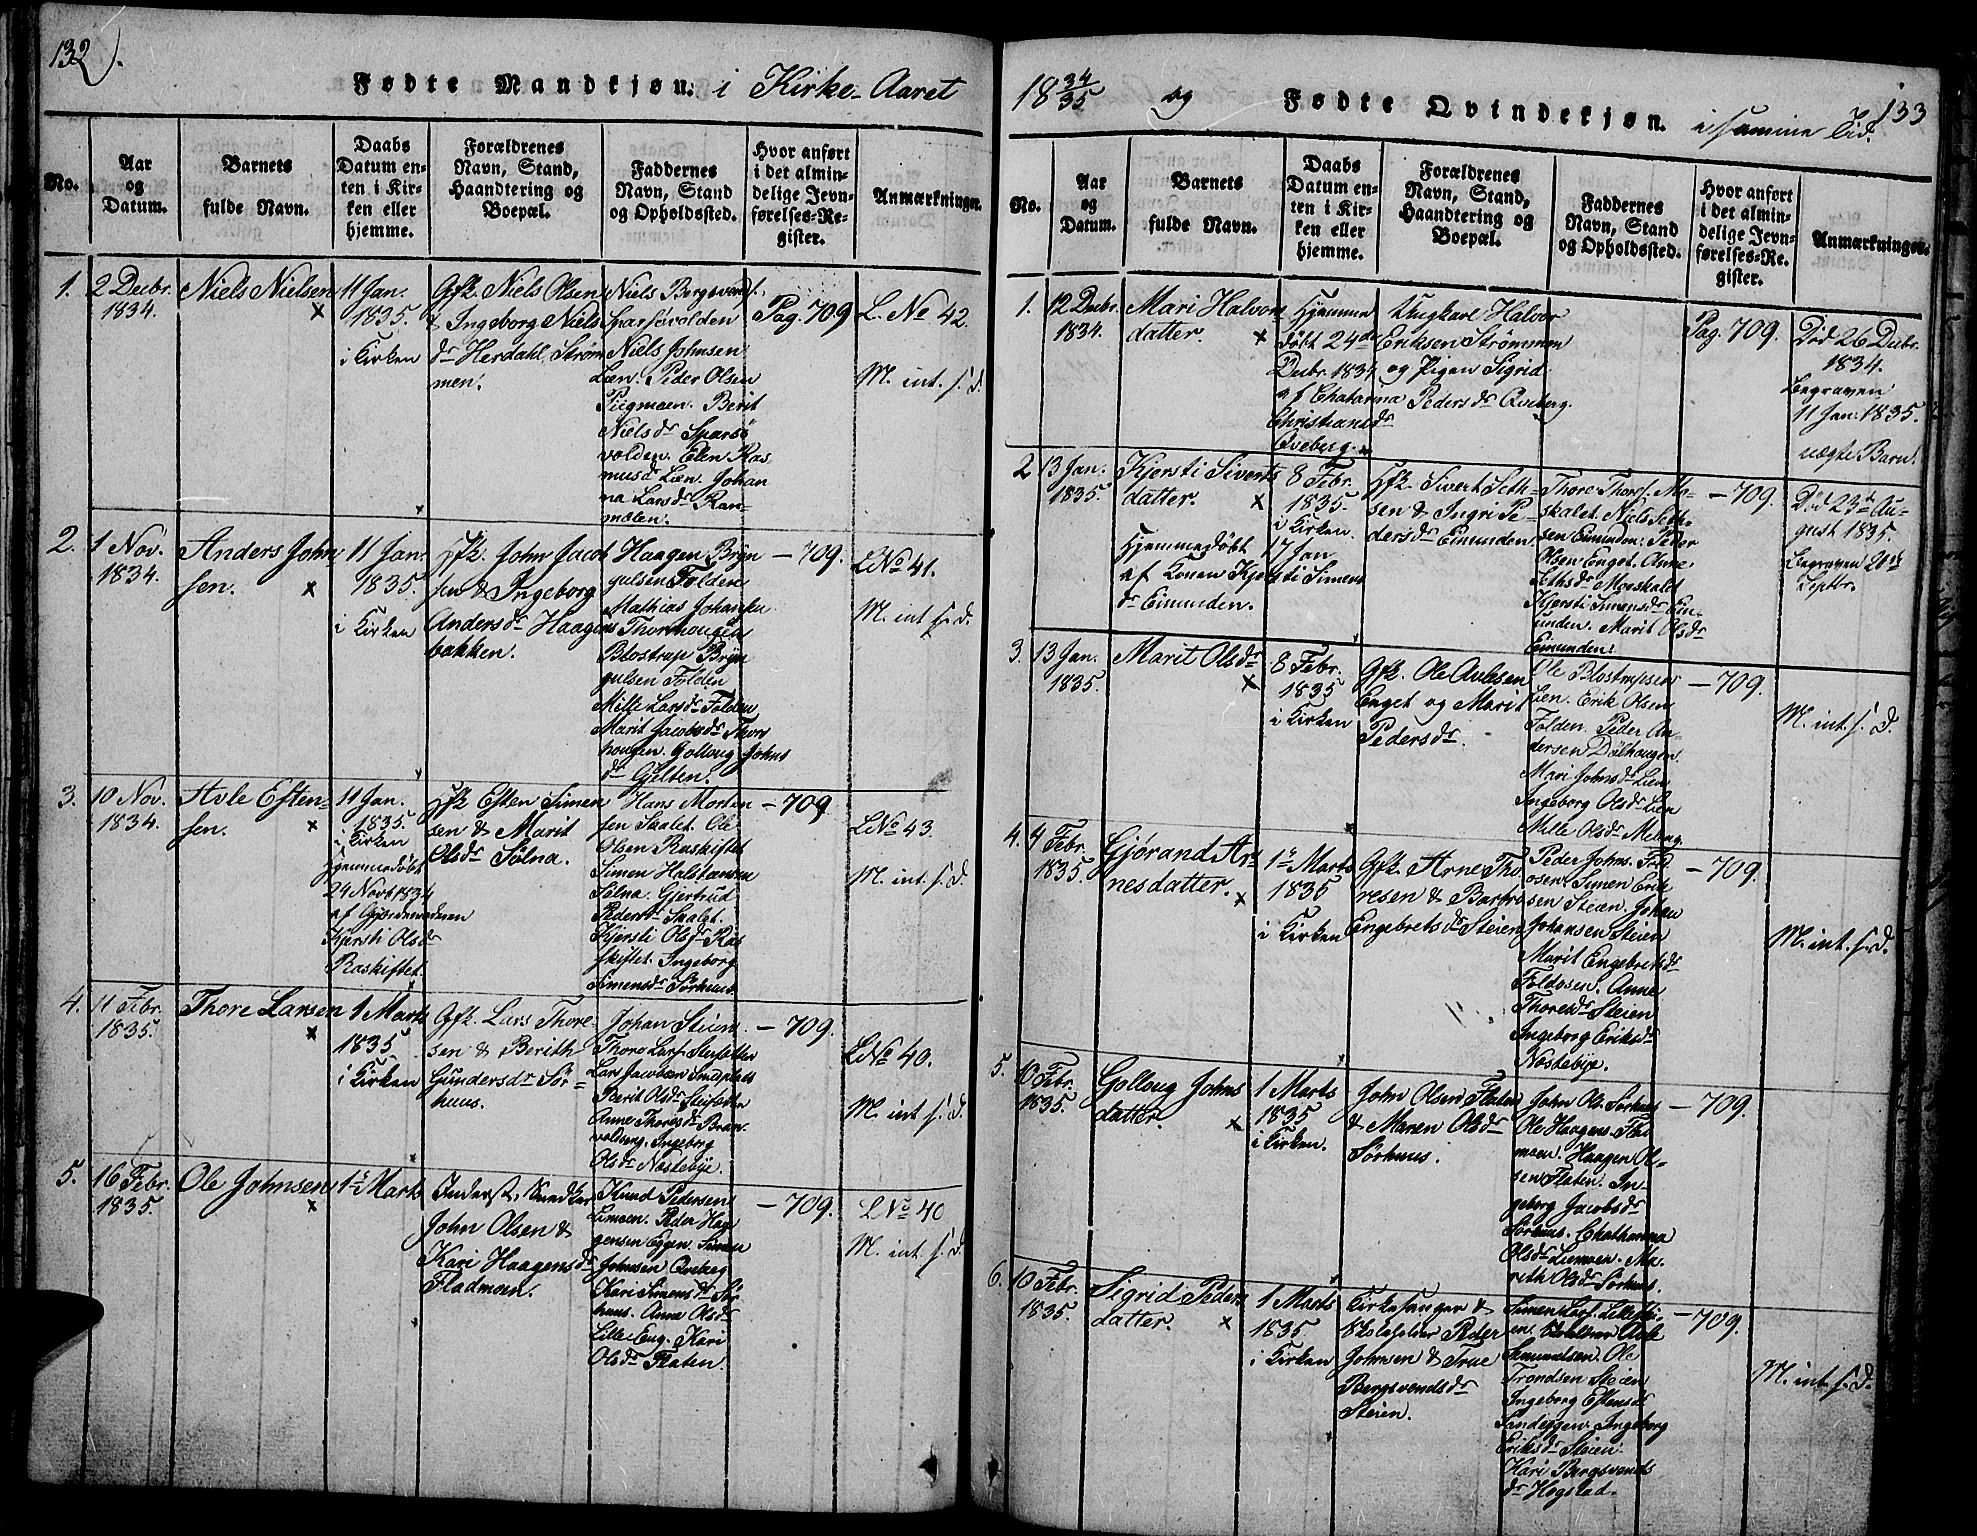 132).
Fødte Mandkjøn. i Kirke-Aaret
No.
Aar
og
Datum.
Barnets
fulde Navn.
Daabs
Datum en-
ten i Kir-
ken eller
hjemme.
Forældrenes
Navn, Stand,
Haandtering og
Boepæl.
Faddernes
Navn, Stand
og Opholdssted.
Hvor anført
i det almin-
delige Jevn-
førelses-Re-
gister.
Anmærkninger.
1.
2 Decbr.
1834.
Niels Nielsen
11 Jan.
1835.
i Kirken
Gfk. Niels Olsen
& Ingeborg Niels
dr Herdahl Strøm
men.
Niels Bergsvend
Sparsøvolden
Niels Johnsen
Læn. Peder Olsen
Piigmoen. Berit
Nielsdr Sparsø
volden. Elen Ras
musd Læn. Johan
na Larsdr Ran-
mælen.
Pag. 709
L. No 42.
M. int. s. d.
2.
1 Nov.
1834.
Anders John
sen.
11 Jan.
1835.
i Kirken
Gfk. John Jacob
sen & Ingeborg
Andersdr Haagens
bakken.
Haagen Bryn
gulsen Folden
Mathias Johansen
Thorshougen
Blostrup Bryn
gulsen Folden
Mille Larsdr Folden
Marit Jacobsdr Thors
hougen. Gollaug Johns
dr Gjelten.
- 709.
L No 41.
M. int s. d.
3.
10 Nov.
1834.
Avle Esten-
sen.
11 Jan.
1835.
i Kirken
Hjemmedøbt
24 Novr 1834
af Gjordemoderen
Kjersti Olsdr
Raskiftet.
Gfk Esten Simen
sen & Marit
Olsdr Sølna.
Hans Morten
sen Saalet. Ole
Olsen Raskiftet
Simen Halstensen
Sølna. Gjertrud
Pedersdr Saalet.
Kjersti Olsdr Ras
kiftet. Ingeborg
Simensdr Sørhuus.
- 709
L No 43.
M. int. s. d.
4.
11 Febr.
1835.
Thore Larsen
1 Marts
1835
i Kirken
Gfk. Lars Thore
sen & Berith
Gundersdr Sør-
huus.
Johan Steien.
Thore Lars.
Lars Jacobsen
Berit Olsdr
Anne Thoresdr Bran
voldeng. Ingeborg
Olsdr Nostebye.
- 709.
L No 40.
M. int s. d.
5.
16 Febr.
1835
Ole Johnsen
1ste Marts
Inderst, Snedker
John Olsen &
Kari Haagensdr
Fladmoen.
Knud Pedersen
Limoen. Peder Haa
gensen Eggen. Simen
Johnsen Qveberg
Kari Simensdr Sør
huus. Anne Olsdr
Lille Eng. Kari
Olsdr Flaten.
- 709.
L No 40
M. int. s. d.
18 34/35 og Fødte Qvindekjøn. i samme Tid.
133
No.
Aar
og
Datum.
Barnets
fulde Navn.
Daabs
Datum en-
ten i Kir-
ken eller
hjemme.
Forældrenes
Navn, Stand,
Haandtering og
Boepæl.
Faddernes
Navn, Stand
og Opholdssted.
Hvor anført
i det almin-
delige Jevn-
førelses-Re-
gister.
Anmærkninger.
1.
12 Decbr.
1834.
Mari Halvors
datter.
Hjemme
døbt 24de
Decbr. 1834
af Chatarina
Christiansdr
Qveberg.
Ungkarl Halvor
Eriksen Strømmen
og Pigen Sigrid
Pedersdr Qveberg.
Pag. 709.
Død 26 Decbr.
1834.
Begraven
11 Jan. 1835.
uægte Barn.
2
13 Jan.
1835.
Kjersti Siverts
datter.
Hjemmedøbt 17 Jan
af Konen Kjersti Simens
dr Eimunden.
8 Febr.
1835.
i Kirken.
Gfk. Sivert Seth-
sen & Ingri Pe-
dersdr Eimunden
Thore Thors. Mo-
skalet. Niels Seth-
sen Eimunden. Peder
Olsen Enget. Anne
Sethsdr Moeskalet
Kjersti Simensdr Eim-
unden. Marit Olsdr
Eimunden.
- 709.
Død 23de Au-
gust 1835.
Begraven 20de
Septbr.
3.
13 Jan.
1835.
Marit Olsdr
8 Febr.
1835
i Kirken
Gfk. Ole Avlesen
Enget og Marit
Pedersdr.
Ole Blostrupsen
Lien. Erik Olsen
Folden. Peder An-
dersen Dølhaugen.
Mari Johnsdr Lien
Ingeborg Olsdr Lien
Mille Olsdr Meleng.
- 709.
M. int. s. d.
4.
4 Febr.
1835.
Gjørand Ar-
nesdatter.
1ste Marts
1835
i Kirken
Gfk. Arne Tho
resen & Barbro
Engebretsdr Steien
Peder Johns. Fold
osen. Simen Erik
sen Steien. Johan
Johansen Steien
Marit Engebretsdr
Foldosen. Anne
Thoresdr Steien
Ingeborg Eriksdr
Nostebye.
- 709.
M. int. s. d.
5.
10 Febr.
1835.
Gollaug Johns
datter.
1 Marts
1835
i Kirken.
John Olsen Flaten
& Maren Olsdr
Sørhuus.
John Ols. Sørhuus
Ole Haagens. Flad
moen. Haagen Ol-
sen Flaten. In-
geborg Jacobsdr
Sørhuus. Chatharina
Olsdr Liemoen. Ma-
reth Olsdr Sørhuus.
- 709.
6.
10 Febr.
1835.
Sigrid Peders
datter.
1 Marts
1835
i Kirken
Kirkesanger &
Skoleholder Peder
Johnsen & True
Bergsvendsdr
Steien.
Simen Lars.
Samundsen. Ole
Trondsen Steien
Ingeborg Estensdr
Sandeggen. Ingeborg
Eriksdr Steien.
Kari Bergsvends
dr Hogstad.
- 709.
M. int. s. d.